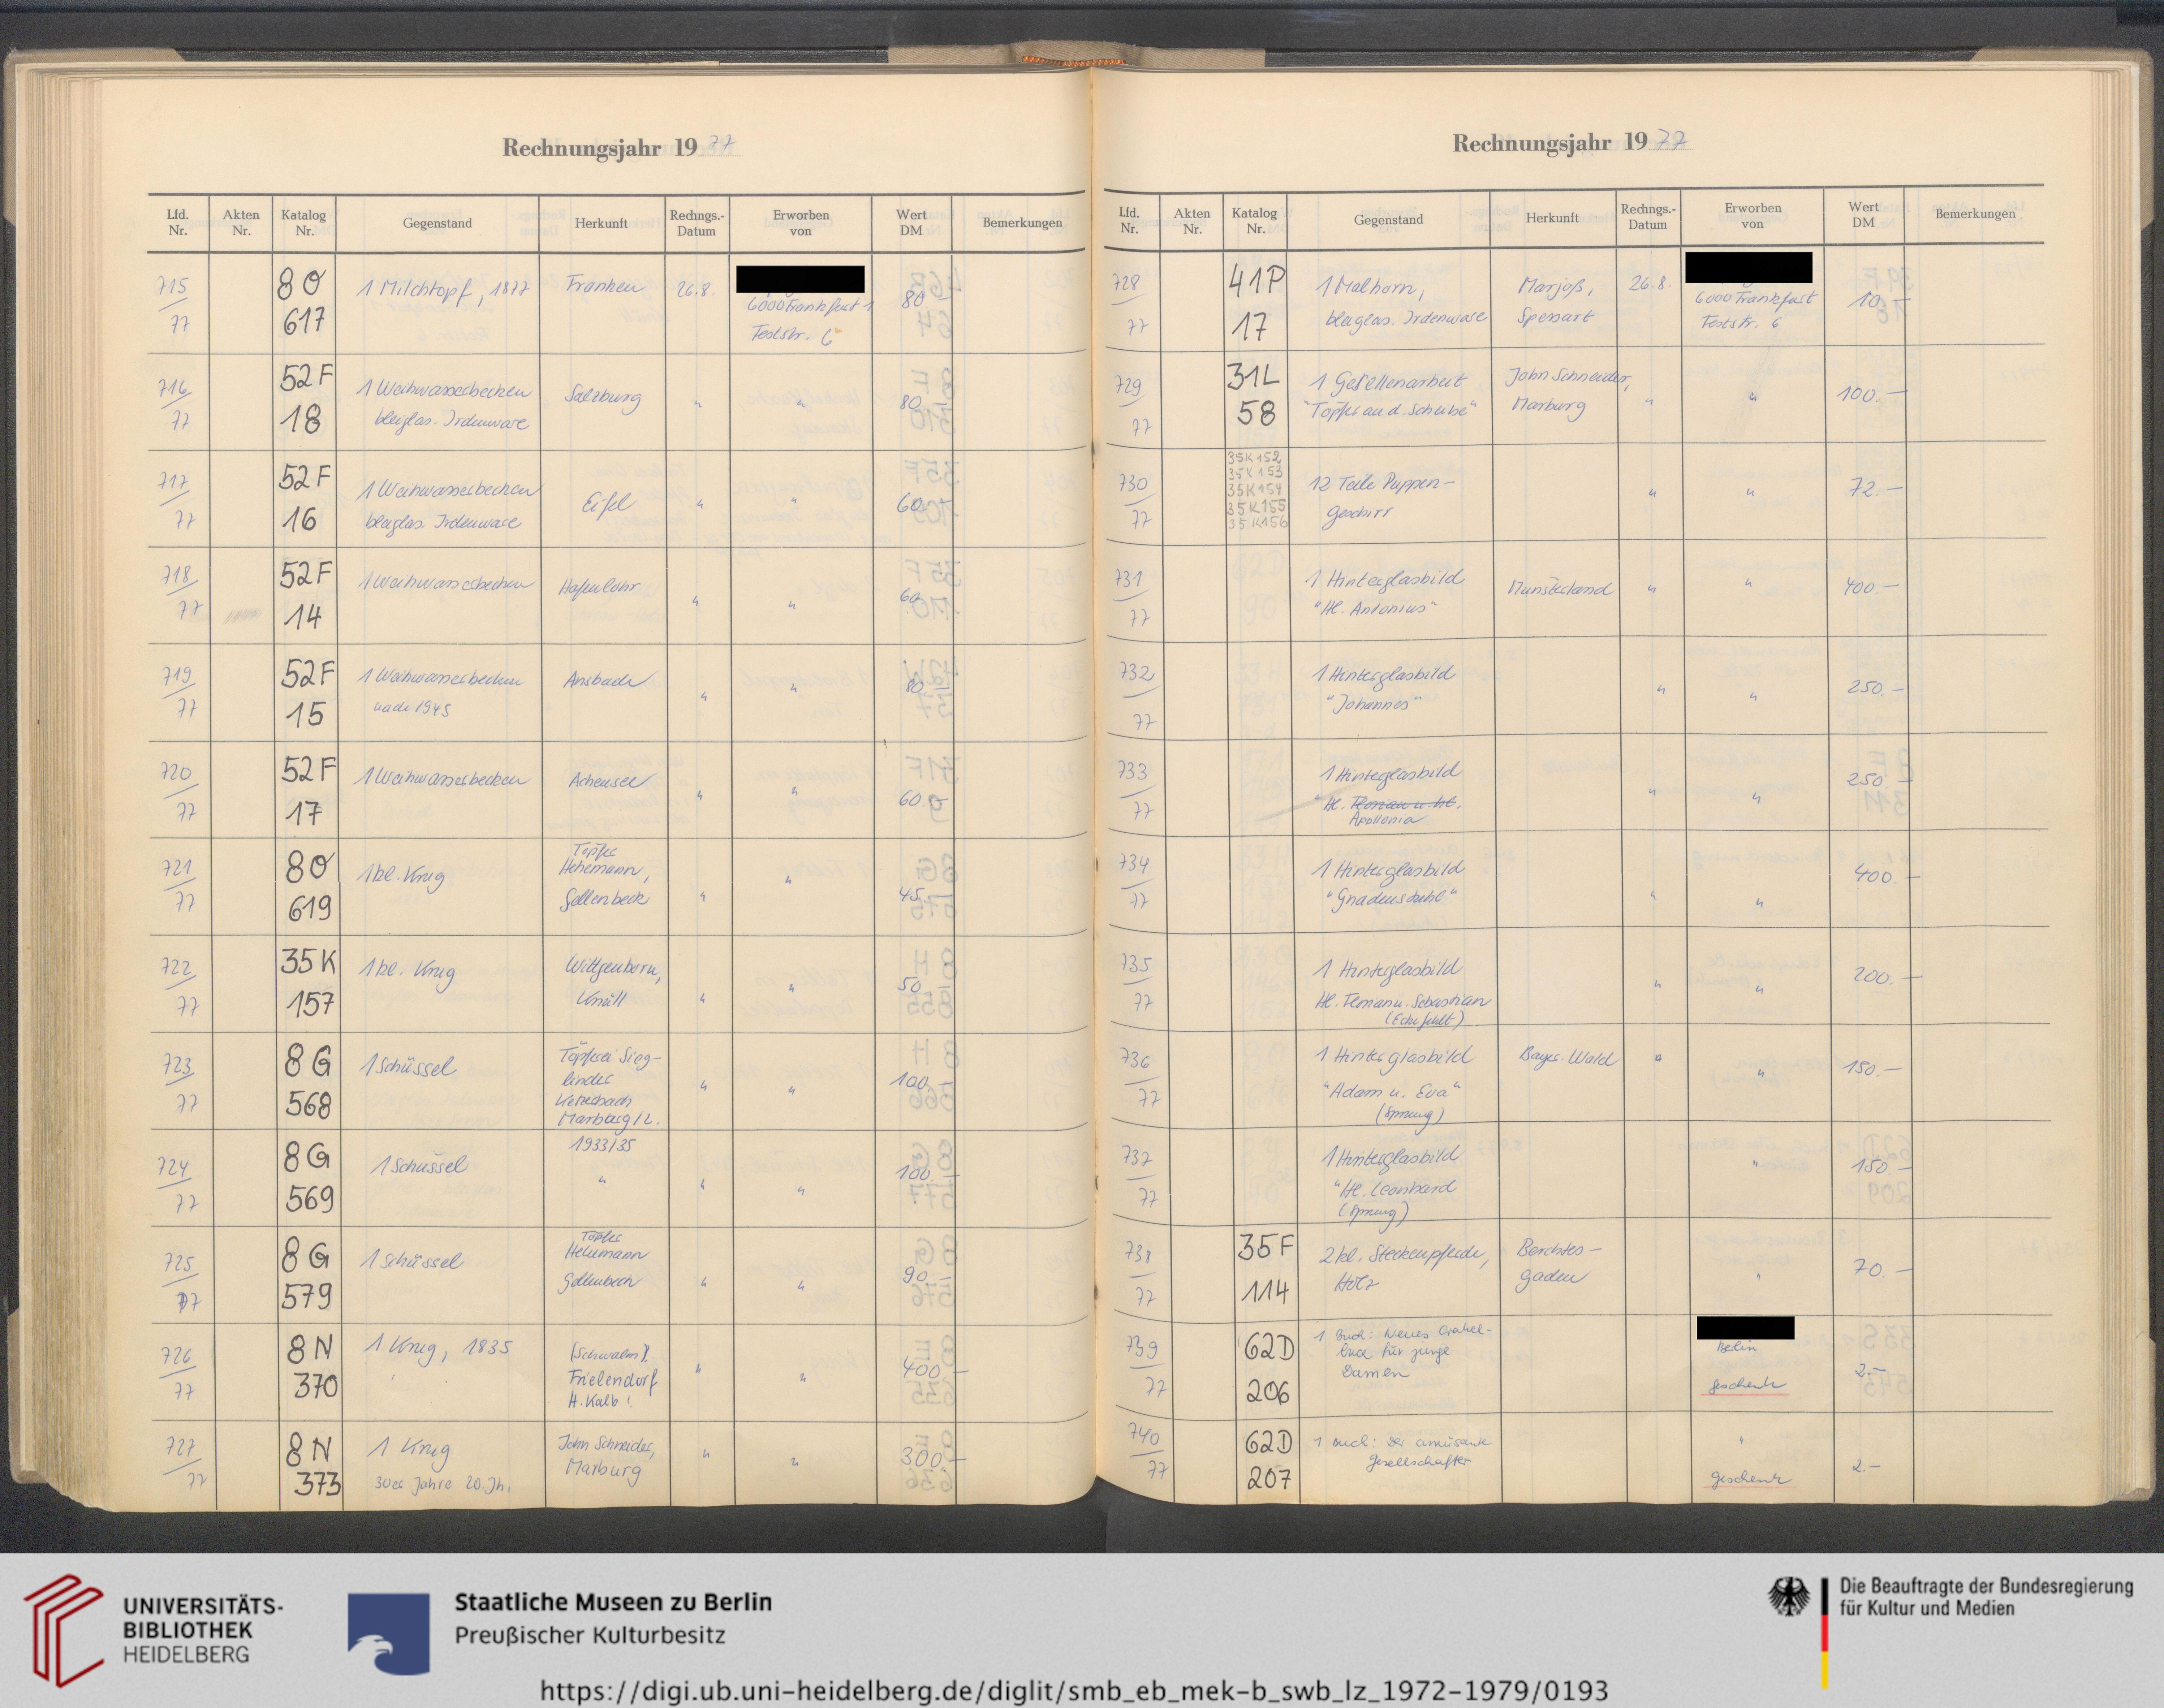 Rechnungsjahr 1977
Lfd. Nr. Akten Nr. Katalog Nr. Gegenstand Herkunft Rechngs.-Datum Erworben von Wert DM Bemerkungen
715/77 8 O 617 1 Milchtopf, 1877 Franken 26.8. 6000 Frankfurt 1 Feststr. 6 80.-
716/77 52 F 18 1 Weihwasserbecken bleiglas. Irdenware Salzburg " " 80.-
717/77 52 F 16 1 Weihwasserbecken bleiglas. Irdenware Eifel " " 60.-
718/77 52 F 14 1 Weihwasserbecken Hafenlohr " " 60.-
719/77 52 F 15 1 Weihwasserbecken nach 1945 Ansbach " " 80.-
720/77 52 F 17 1 Weihwasserbecken Achensee " " 60.-
721/77 8 O 619 1 kl. Krug Töpfer Hehemann, Gellenbeck " " 45.-
722/77 35 K 157 1 kl. Krug Wittgenborn, Knüll " " 50.-
723/77 8 G 568 1 Schüssel Töpferei Sieg- linder Marburg/L. " " 100.-
1933/35
724/77 8 G 569 1 Schüssel " " " 100.-
725/77 8 G 579 1 Schüssel Töpfer Hehemann Gellenbeck " " 90.-
726/77 8 N 370 1 Krug, 1835 (Schwalm) Frielendorf H. Kalb! " " 400.-
727/77 8 N 373 1 Krug 30er Jahre 20. Jh. John Schneider, Marburg " " 300.-
Rechnungsjahr 1977
Lfd. Nr. Akten Nr. Katalog Nr. Gegenstand Herkunft Rechngs.-Datum Erworben von Wert DM Bemerkungen
728/77 41 P 17 1 Malhorn, bleiglas. Irdenware Marjoß, Spessart 26.8. 6000 Frankfurt Feststr. 6 10.-
729/77 31 L 58 1 Gesellenarbeit "Töpfer an d. Scheibe" John Schneider, Marburg " " 100.-
730/77 35 K 152 35 K 153 35 K 154 35 K 155 35 K 156 12 Teile Puppen- geschirr " " 72.-
731/77 1 Hinterglasbild "Hl. Antonius" Münsterland " " 400.-
732/77 1 Hinterglasbild "Johannes" " " 250.-
733/77 1 Hinterglasbild "Hl. Florian u. hl. Apollonia " " 250.-
734/77 1 Hinterglasbild "Gnadenstuhl" " " 400.-
735/77 1 Hinterglasbild Hl. Florian u. Sebastian (Ecke fehlt) " " 200.-
736/77 1 Hinterglasbild "Adam u. Eva" (Sprung) Bayer. Wald " " 150.-
737/77 1 Hinterglasbild "Hl. Leonhard (Sprung) " 150.-
738/77 35 F 114 2 kl. Steckenpferde, Holz Berchtes- gaden " 70.-
739/77 62 D 206 1 Buch: Neues Orakel- buch für junge Damen Berlin Geschenk 2.-
740/77 62 D 207 1 Buch: Der amüsante Gesellschafter " Geschenk 2.-
UNIVERSITÄTS-
BIBLIOTHEK
HEIDELBERG
Staatliche Museen zu Berlin
Preußischer Kulturbesitz
Die Beauftragte der Bundesregierung
für Kultur und Medien
https://digi.ub.uni-heidelberg.de/diglit/smb_eb_mek-b_swb_lz_1972-1979/0193